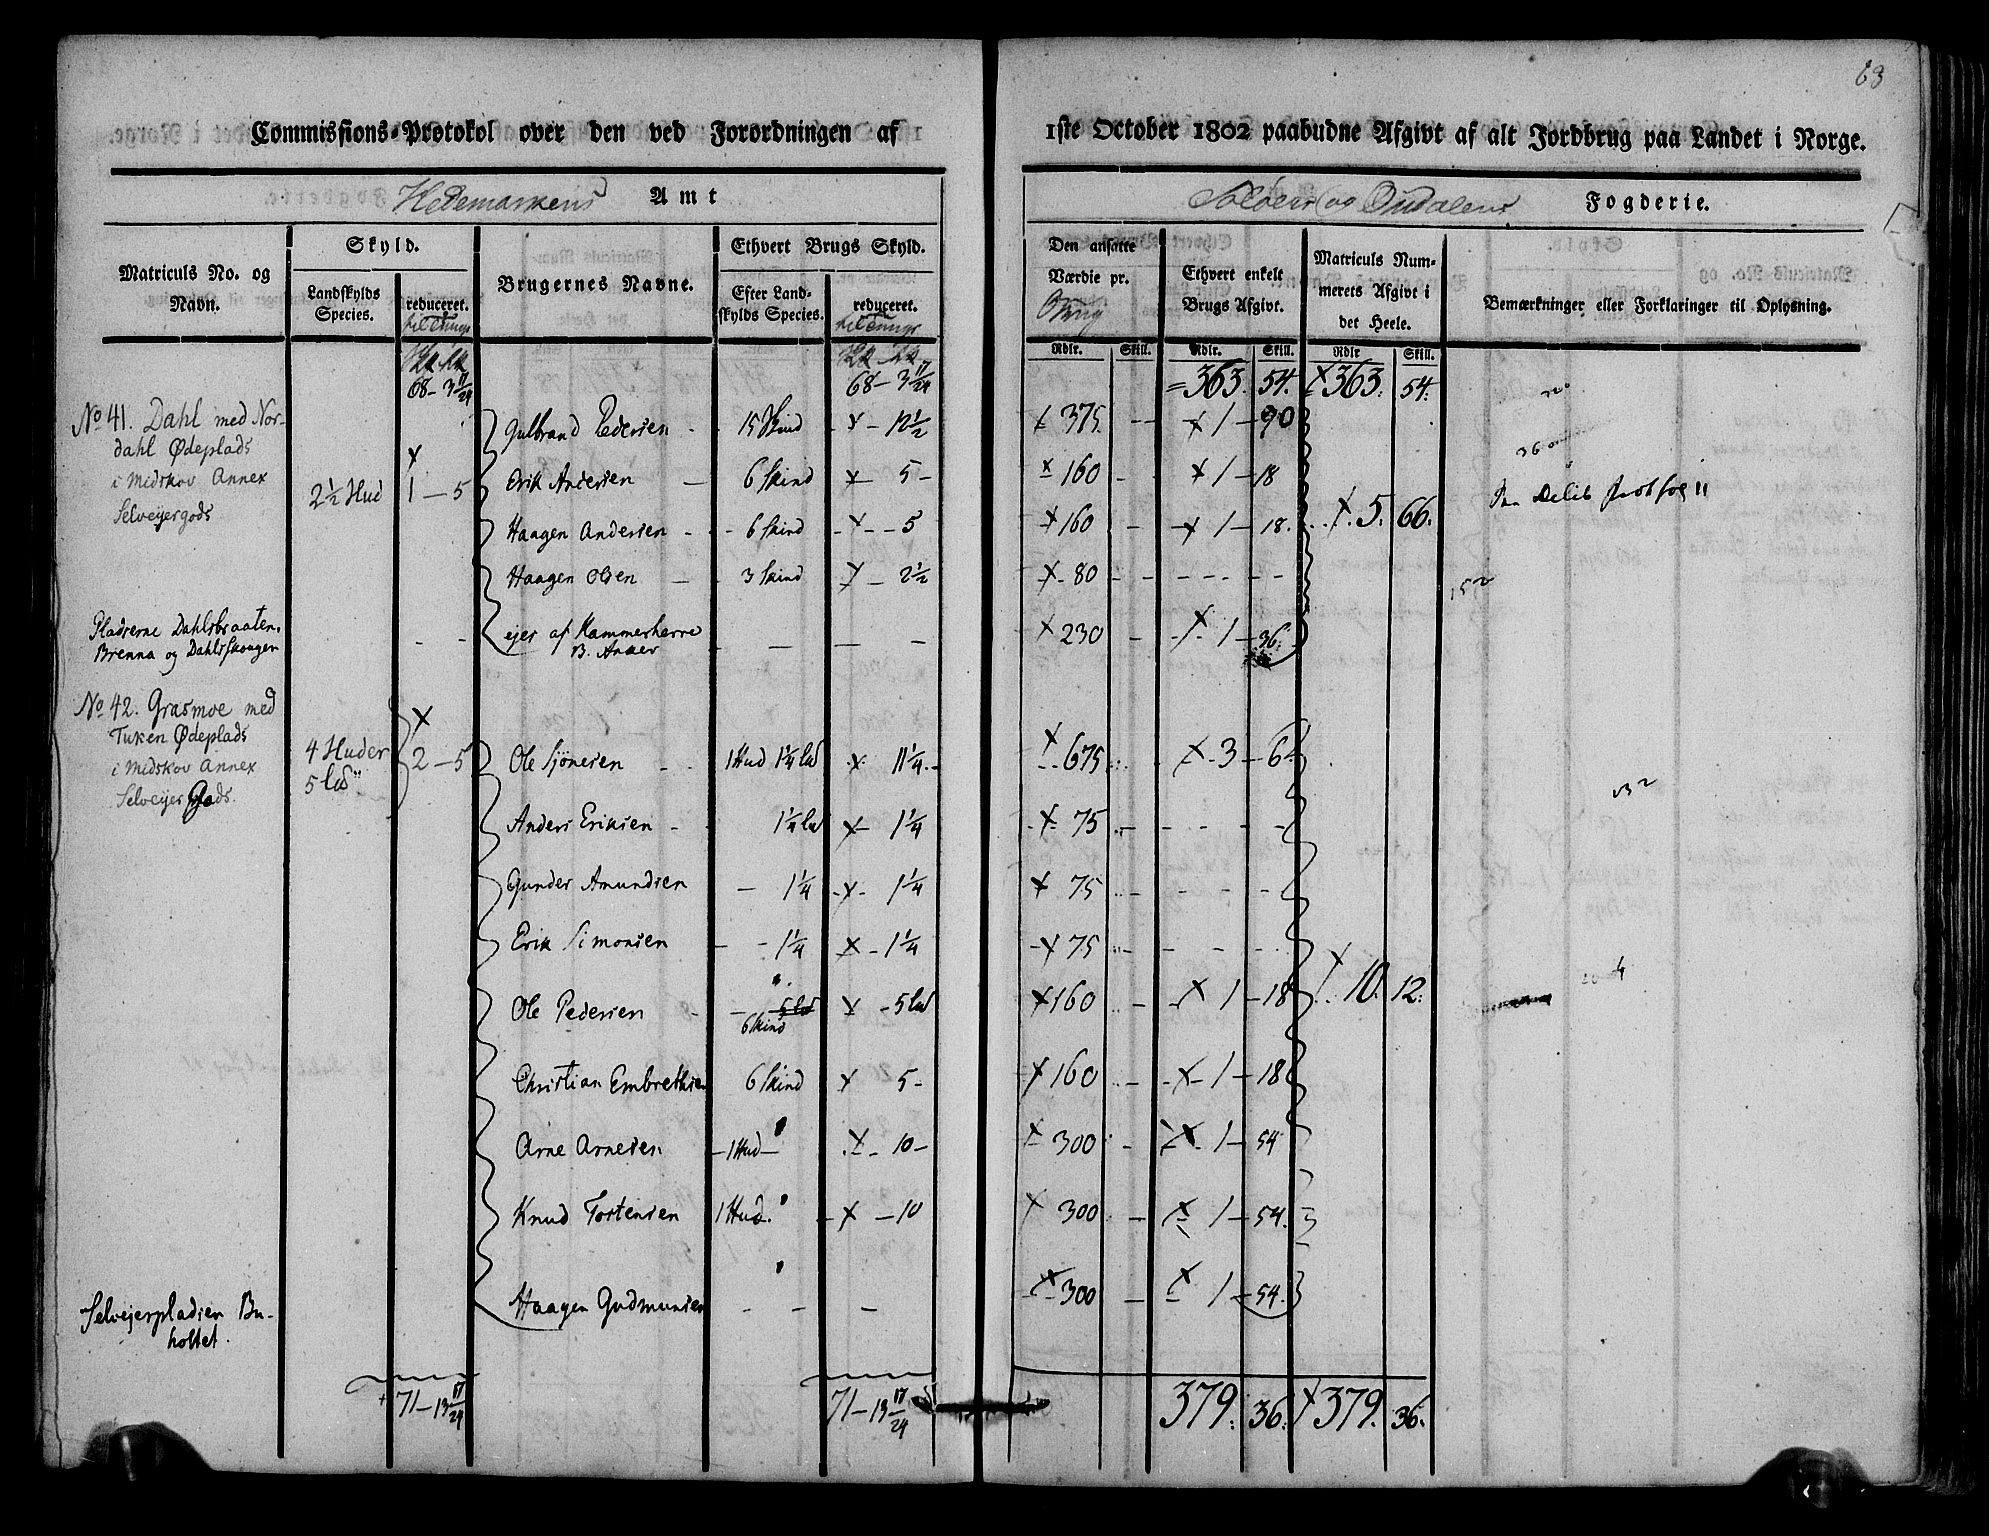 63
Commissions-Protokol over den ved Forordningen af 1ste October 1802 paabudne Afgivt af alt Jordbrug paa Landet i Norge.
Hedemarkens Amt
Soløers og Oudalens Fogderie.
Matriculs No. og Navn.
Skyld.
Landskylds Species.
reduceret.
Brugernes Navne.
Ethvert Brugs Skyld.
Efter Landskylds Species.
reduceret.
Den ansatte Værdie pr. Brug
Ethvert enkelt Brugs Afgivt.
Matriculs Nummerets Afgivt i det Heele.
Bemærkninger eller Forklaringer til Oplysning.
Rdlr. Skill. Rdlr. Skill. Rdlr Skill.
68 - 3 17/24 68 - 3 17/24 363. 54. 363. 54.
No 41. Dahl med Nor-
dahl Ødeplads
i Midskov Annex
Selveyergods
2½ Hud 1 - 5
Gulbrand Pedersen - 15 Skind - 12½ 375 - 1 - 90
Erik Andersen - 6 Skind - 5 - 160 - 1 - 18
Haagen Andersen - 6 Skind - 5 160 - 1 - 18. 5. 66.
Haagen Olsen - 3 Skind - 2½ 80 - - - -
Pladserne Dahlsbraaten,
Brenna og Dahlsskougen
ejer af Kammerherre
B. Anker
230 - 1 - 36.
No 42. Grasmoe med
Tuken Ødeplads
i Midskov Annex
Selveyer Gods.
4 Huder
5 lɞ
2 - 5
Ole Sjönesen 1 Hud 1¼ lɞ 11¼ 675 3 - 6
Anders Eriksen - 1¼ lɞ 1¼ 75 - - -
Gunder Amundsen - 1¼ 1¼ 75 - - -
Erik Simonsen - 1¼ 1¼ 75 - - -
Ole Pedersen - 6 Skind - 5 lɞ 160 - 1 - 18 10. 12.
Christian Embrethsen 6 Skind 5 - 160 - 1 - 18
Arne Arnesen - 1 Hud - 10 - 300 - 1 - 54
Knud Tostensen 1 Hud. - 10 300 - 1 - 54.
Selveyerpladsen Bu-
holtet.
Haagen Gudmunsen - - - 300 - 1 - 54.
71 - 13 17/24 71 - 13 17/24 379. 36. 379. 36.